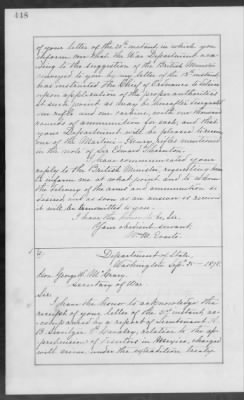 448
of your letter of the 20th instant in which you
inform me that the War Department acting
to the suggestion of the British Minister
conveyed to you by my letter of the 13th instant
has instructed the Chief of Ordnance to deliver
upon application of the proper authorities
at such point as may be hereafter suggested
one rifle and one carbine, with one thousand
rounds of ammunition for each, and that
your Department will be pleased to receive
one of the Martini-Henry rifles mentioned
in the note of Sir Edward Thornton.
I have communicated your
reply to the British Minister, requesting him
to inform me at what point and to whom
the delivery of the arms and ammunition is
desired and as soon as an answer is received
it will be transmitted to you.
I have the honor to be, Sir,
Your obedient servant,
Wm. M. Evarts.
Department of State,
Washington, Sept. 25 1878.
Hon. George W. McCrary,
Secretary of War.
Sir:
I have the honor to acknowledge the
receipt of your letter of the instant, accompanied
by a report of Lieutenant
Cavalry, relative to the apprehension
of in Mexico, charged
with crime under the extradition treaty